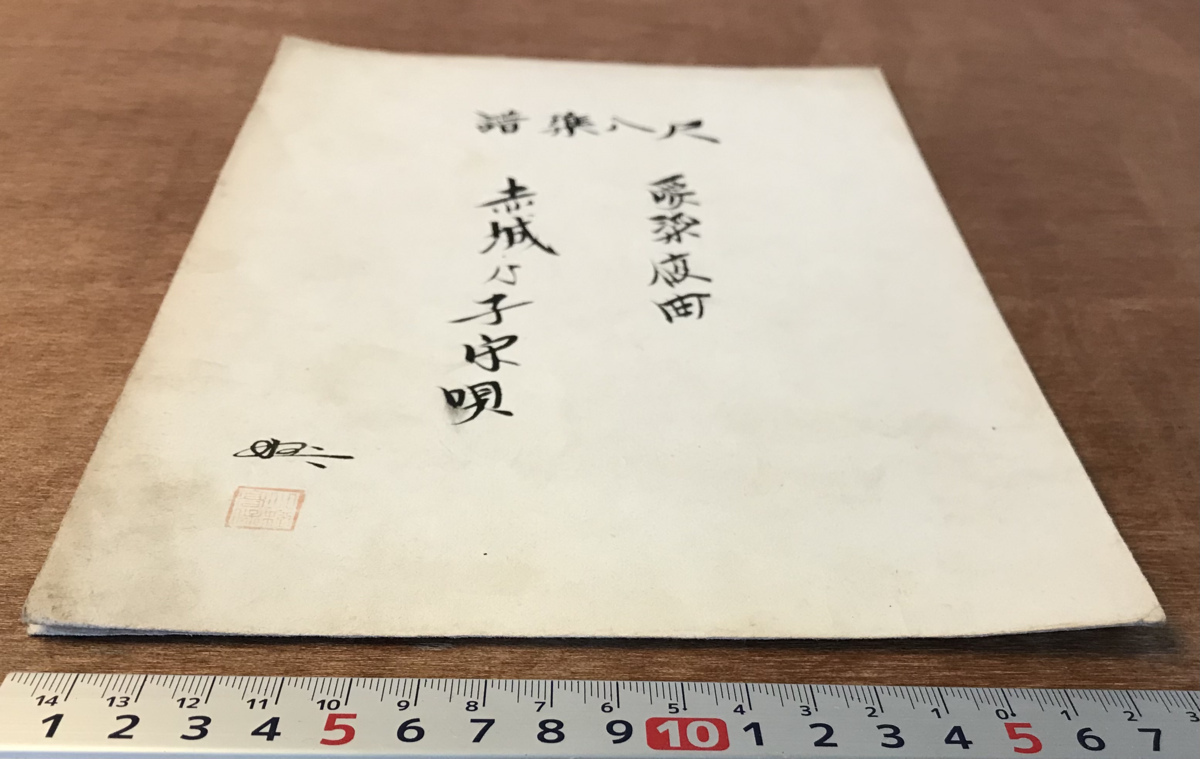 尺八樂譜
愛染夜曲
赤城の子守唄
14 13 12 11 10 9 8 7 6 5 4 3 2 1 0 1 2 3
1 2 3 4 5 6 7 8 9 10 1 2 3 4 5 6 7